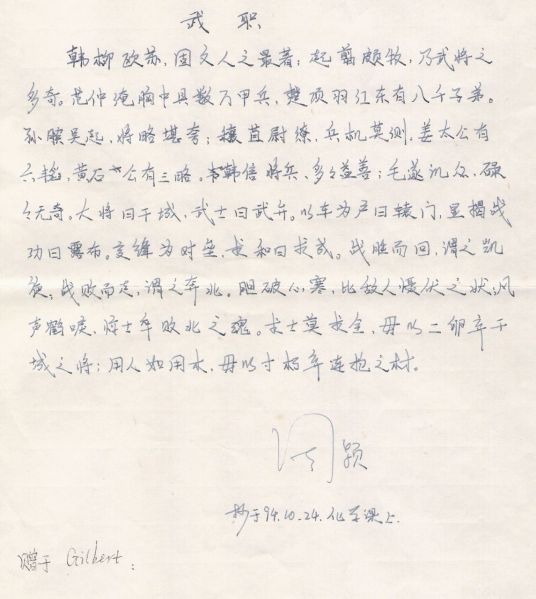 武 职
韩柳欧苏,固文人之最著;起翦颇牧,乃武将之
多奇。范仲淹胸中具数万甲兵,楚项羽江东有八千子弟。
孙膑吴起,将略堪夸;穰苴尉缭,兵机莫测,姜太公有
六韬,黄石公有三略。韩信将兵,多々益善;毛遂讥众,碌
々无奇。大将曰干城,武士曰武弁。以车为户曰辕门,显揭战
功曰露布。交锋为对垒,求和曰求成。战胜而回,谓之凯
旋;战败而走,谓之奔北。胆破心寒,比敌人慑伏之状;风
声鹤唳,惊士卒败北之魂。求士莫求全,毋以二卵弃干
城之将;用人如用木,毋以寸朽弃连抱之材。
周颖
抄于94.10.24.化学课上.
赠于 Gilbert: